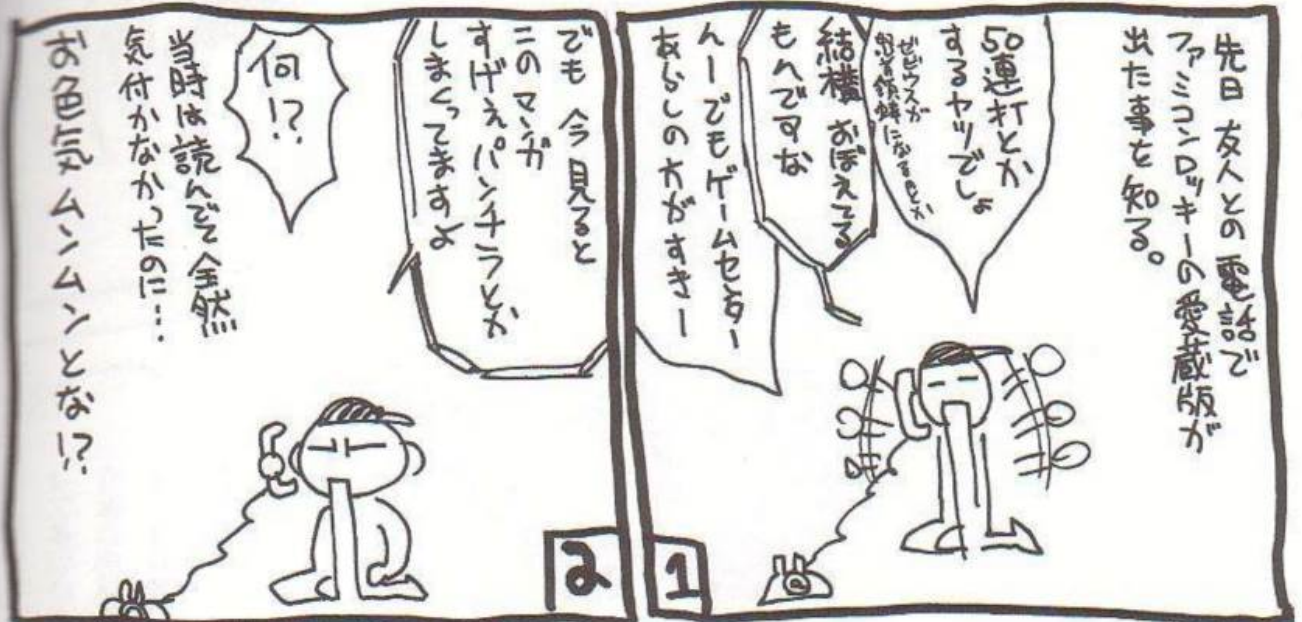 先日 友人との電話で
ファミコンロッキーの愛蔵版が
出た事を知る。
50連打とか
するヤツでしょ
ゼビウスが
結構 おぼえてる
もんですな
んーでもゲームセンター
あらしの方がすきー
1
でも 今見ると
このマンガ
すげぇパンチラとか
しまくってますよ
何!?
当時は読んでて全然
気付かなかったのに…
お色気ムンムンとな!?
2